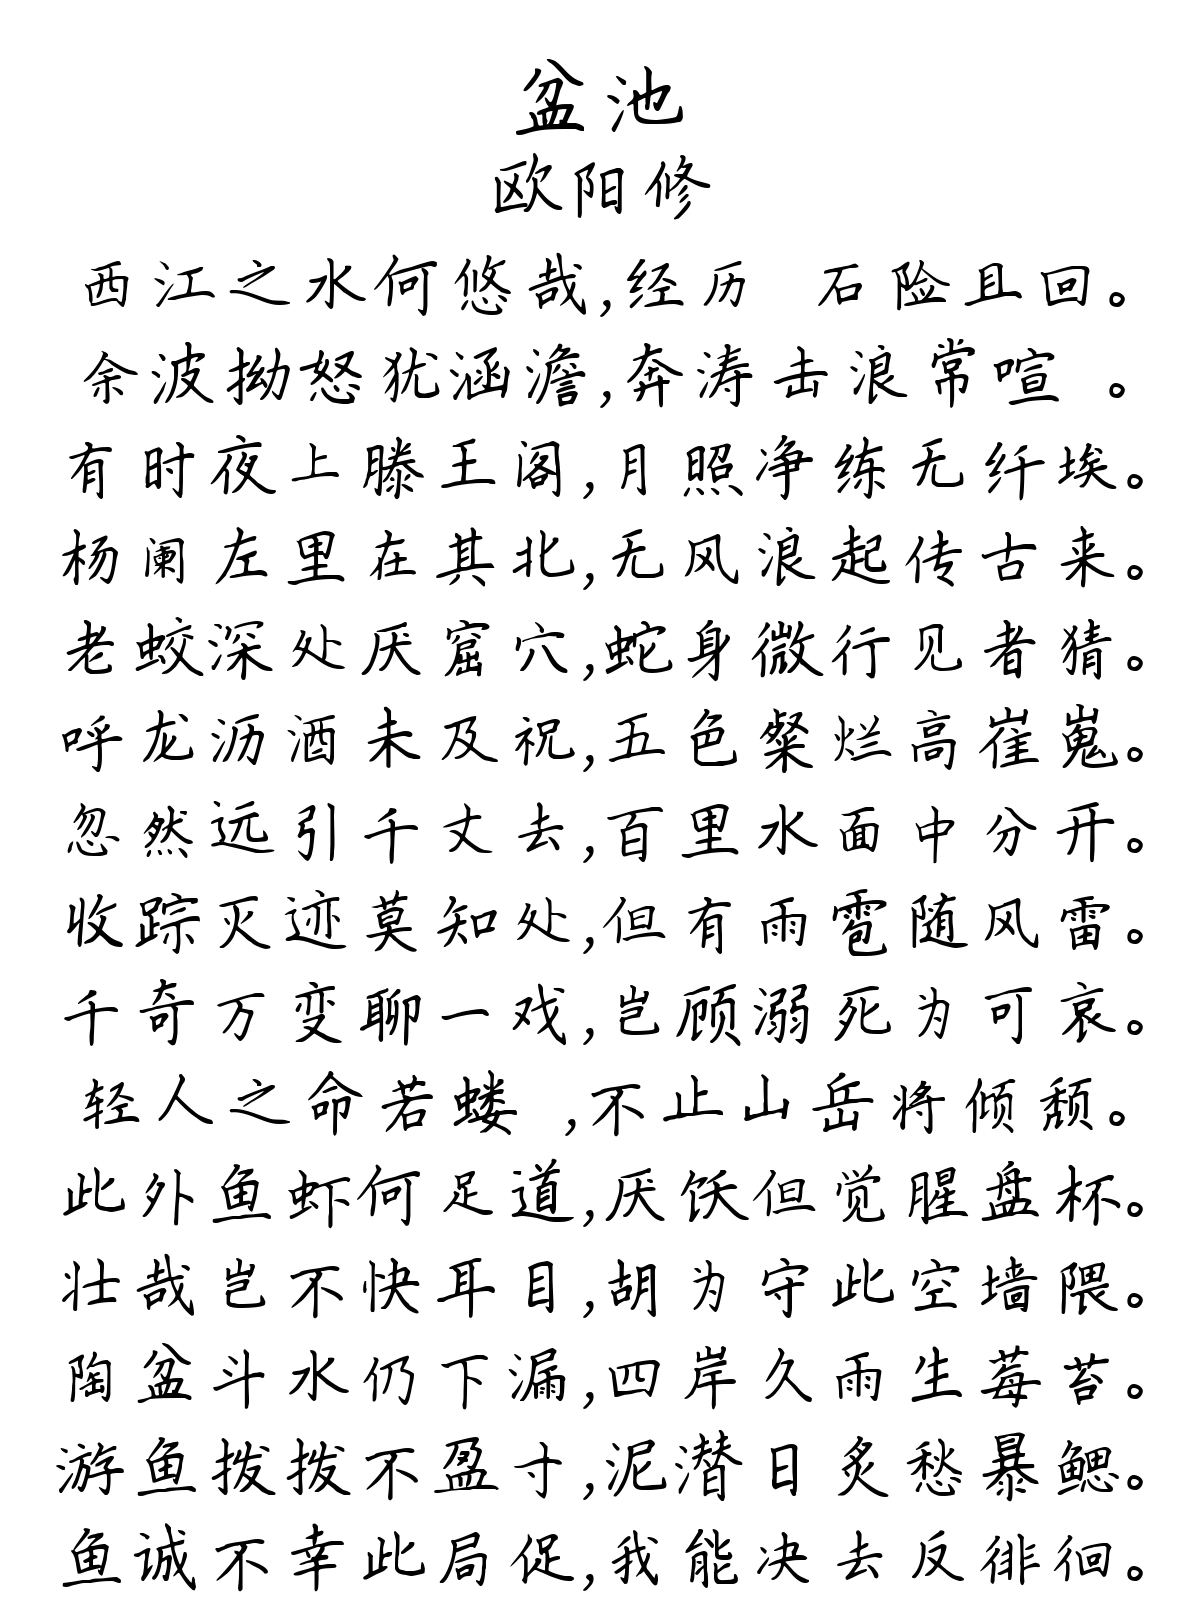 盆池
欧阳修
西江之水何悠哉,经历 石险且回。
余波拗怒犹涵澹,奔涛击浪常喧 。
有时夜上滕王阁,月照净练无纤埃。
杨阑左里在其北,无风浪起传古来。
老蛟深处厌窟穴,蛇身微行见者猜。
呼龙沥酒未及祝,五色粲烂高崔嵬。
忽然远引千丈去,百里水面中分开。
收踪灭迹莫知处,但有雨雹随风雷。
千奇万变聊一戏,岂顾溺死为可哀。
轻人之命若蝼 ,不止山岳将倾颓。
此外鱼虾何足道,厌饫但觉腥盘杯。
壮哉岂不快耳目,胡为守此空墙隈。
陶盆斗水仍下漏,四岸久雨生莓苔。
游鱼拨拨不盈寸,泥潜日炙愁暴鳃。
鱼诚不幸此局促,我能决去反徘徊。